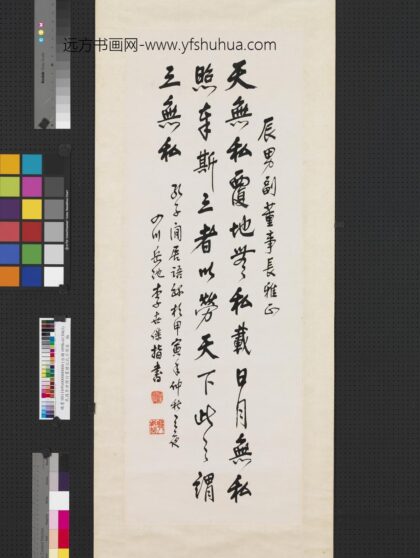 远方书画网-www.yfshuhua.com
辰男副董事長雅正
天無私覆地無私載日月無私
照奉斯三者以勞天下此之謂
三無私
孔子閒居語錄於甲寅年仲秋之夜
四川岳池李子世傑指書